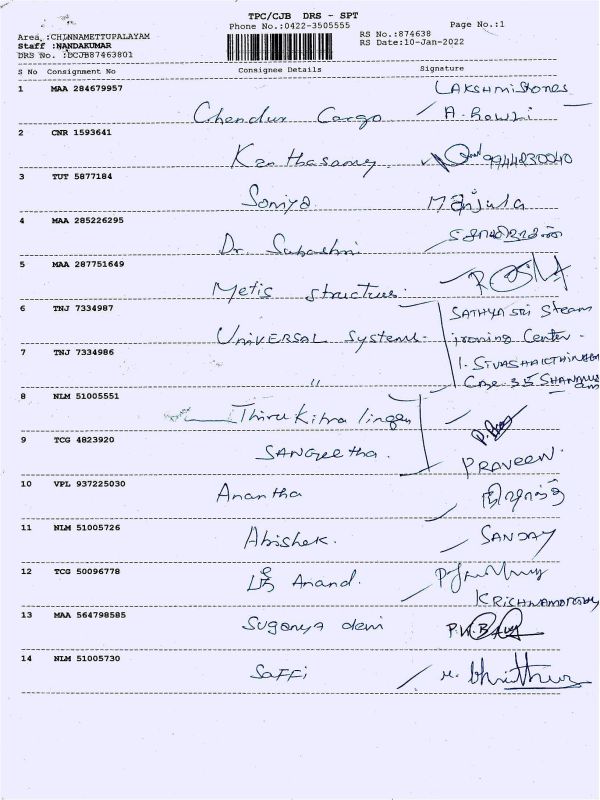 TPC/CJB DRS - SPT
Phone No.:0422-3505555
Page No.:1
Area :CHINNAMETTUPALAYAM
Staff :NANDAKUMAR
DRS No. :DCJB87463801
RS No.:874638
RS Date:10-Jan-2022
S No Consignment No Consignee Details Signature
1 MAA 284679957 Chendur Cargo LAKSHmi Stores
2 CNR 1593641 Kanthasamy 9944830040
3 TUT 5877184 Soniya மஞ்சுளா
4 MAA 285226295 Dr. Subashni
5 MAA 287751649 Metis structure.
6 TNJ 7334987 UNIVERSAL Systems- SATHYA SRI Steam
ironing Center -
7 TNJ 7334986 "
8 NLM 51005551
9 TCG 4823920 SANGeetha. PRAVEEN.
10 VPL 937225030 Anantha
11 NLM 51005726 Abishek. SANJAY
12 TCG 50096778 Anand.
13 MAA 564798585 Suganya devi
14 NLM 51005730 Saffi